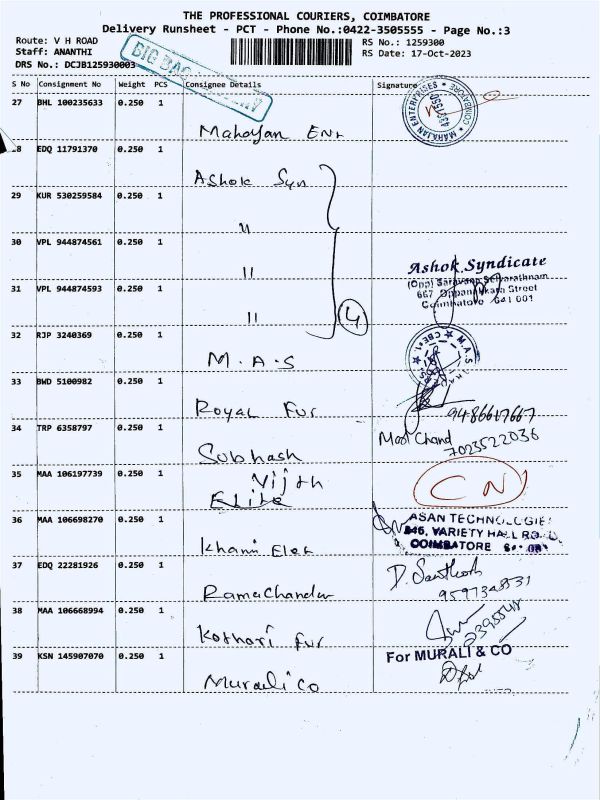 THE PROFESSIONAL COURIERS, COIMBATORE
Delivery Runsheet - PCT - Phone No.:0422-3505555 - Page No.:3
Route: V H ROAD
RS No.: 1259300
Staff: ANANTHI
RS Date: 17-Oct-2023
DRS No.: DCJB125930003
BIG BAG
S No Consignment No Weight PCS Consignee Details Signature
27 BHL 100235633 0.250 1
MAHAJAN ENTERPRISES COIMBATORE
Mahajan Ent
28 EDQ 11791370 0.250 1
Ashok Syn
29 KUR 530259584 0.250 1
"
30 VPL 944874561 0.250 1
"
Ashok Syndicate
31 VPL 944874593 0.250 1
667 Oppanakkara Street
Coimbatore 641 001
"
4
32 RJP 3240369 0.250 1
M.A.S
M.A.S
33 BWD 5100982 0.250 1
Royal Fur
9486617667
34 TRP 6358797 0.250 1
Mool Chand
7023522036
Subhash
35 MAA 106197739 0.250 1
Vijth
Elite
CN
36 MAA 106698270 0.250 1
ASAN TECHNOLOGIES
846, VARIETY HALL ROAD
COIMBATORE
Khami Elec
37 EDQ 22281926 0.250 1
D. Santhosh
Ramachandar
38 MAA 106668994 0.250 1
Kothari Fur
39 KSN 145907070 0.250 1
For MURALI & CO
Murali Co